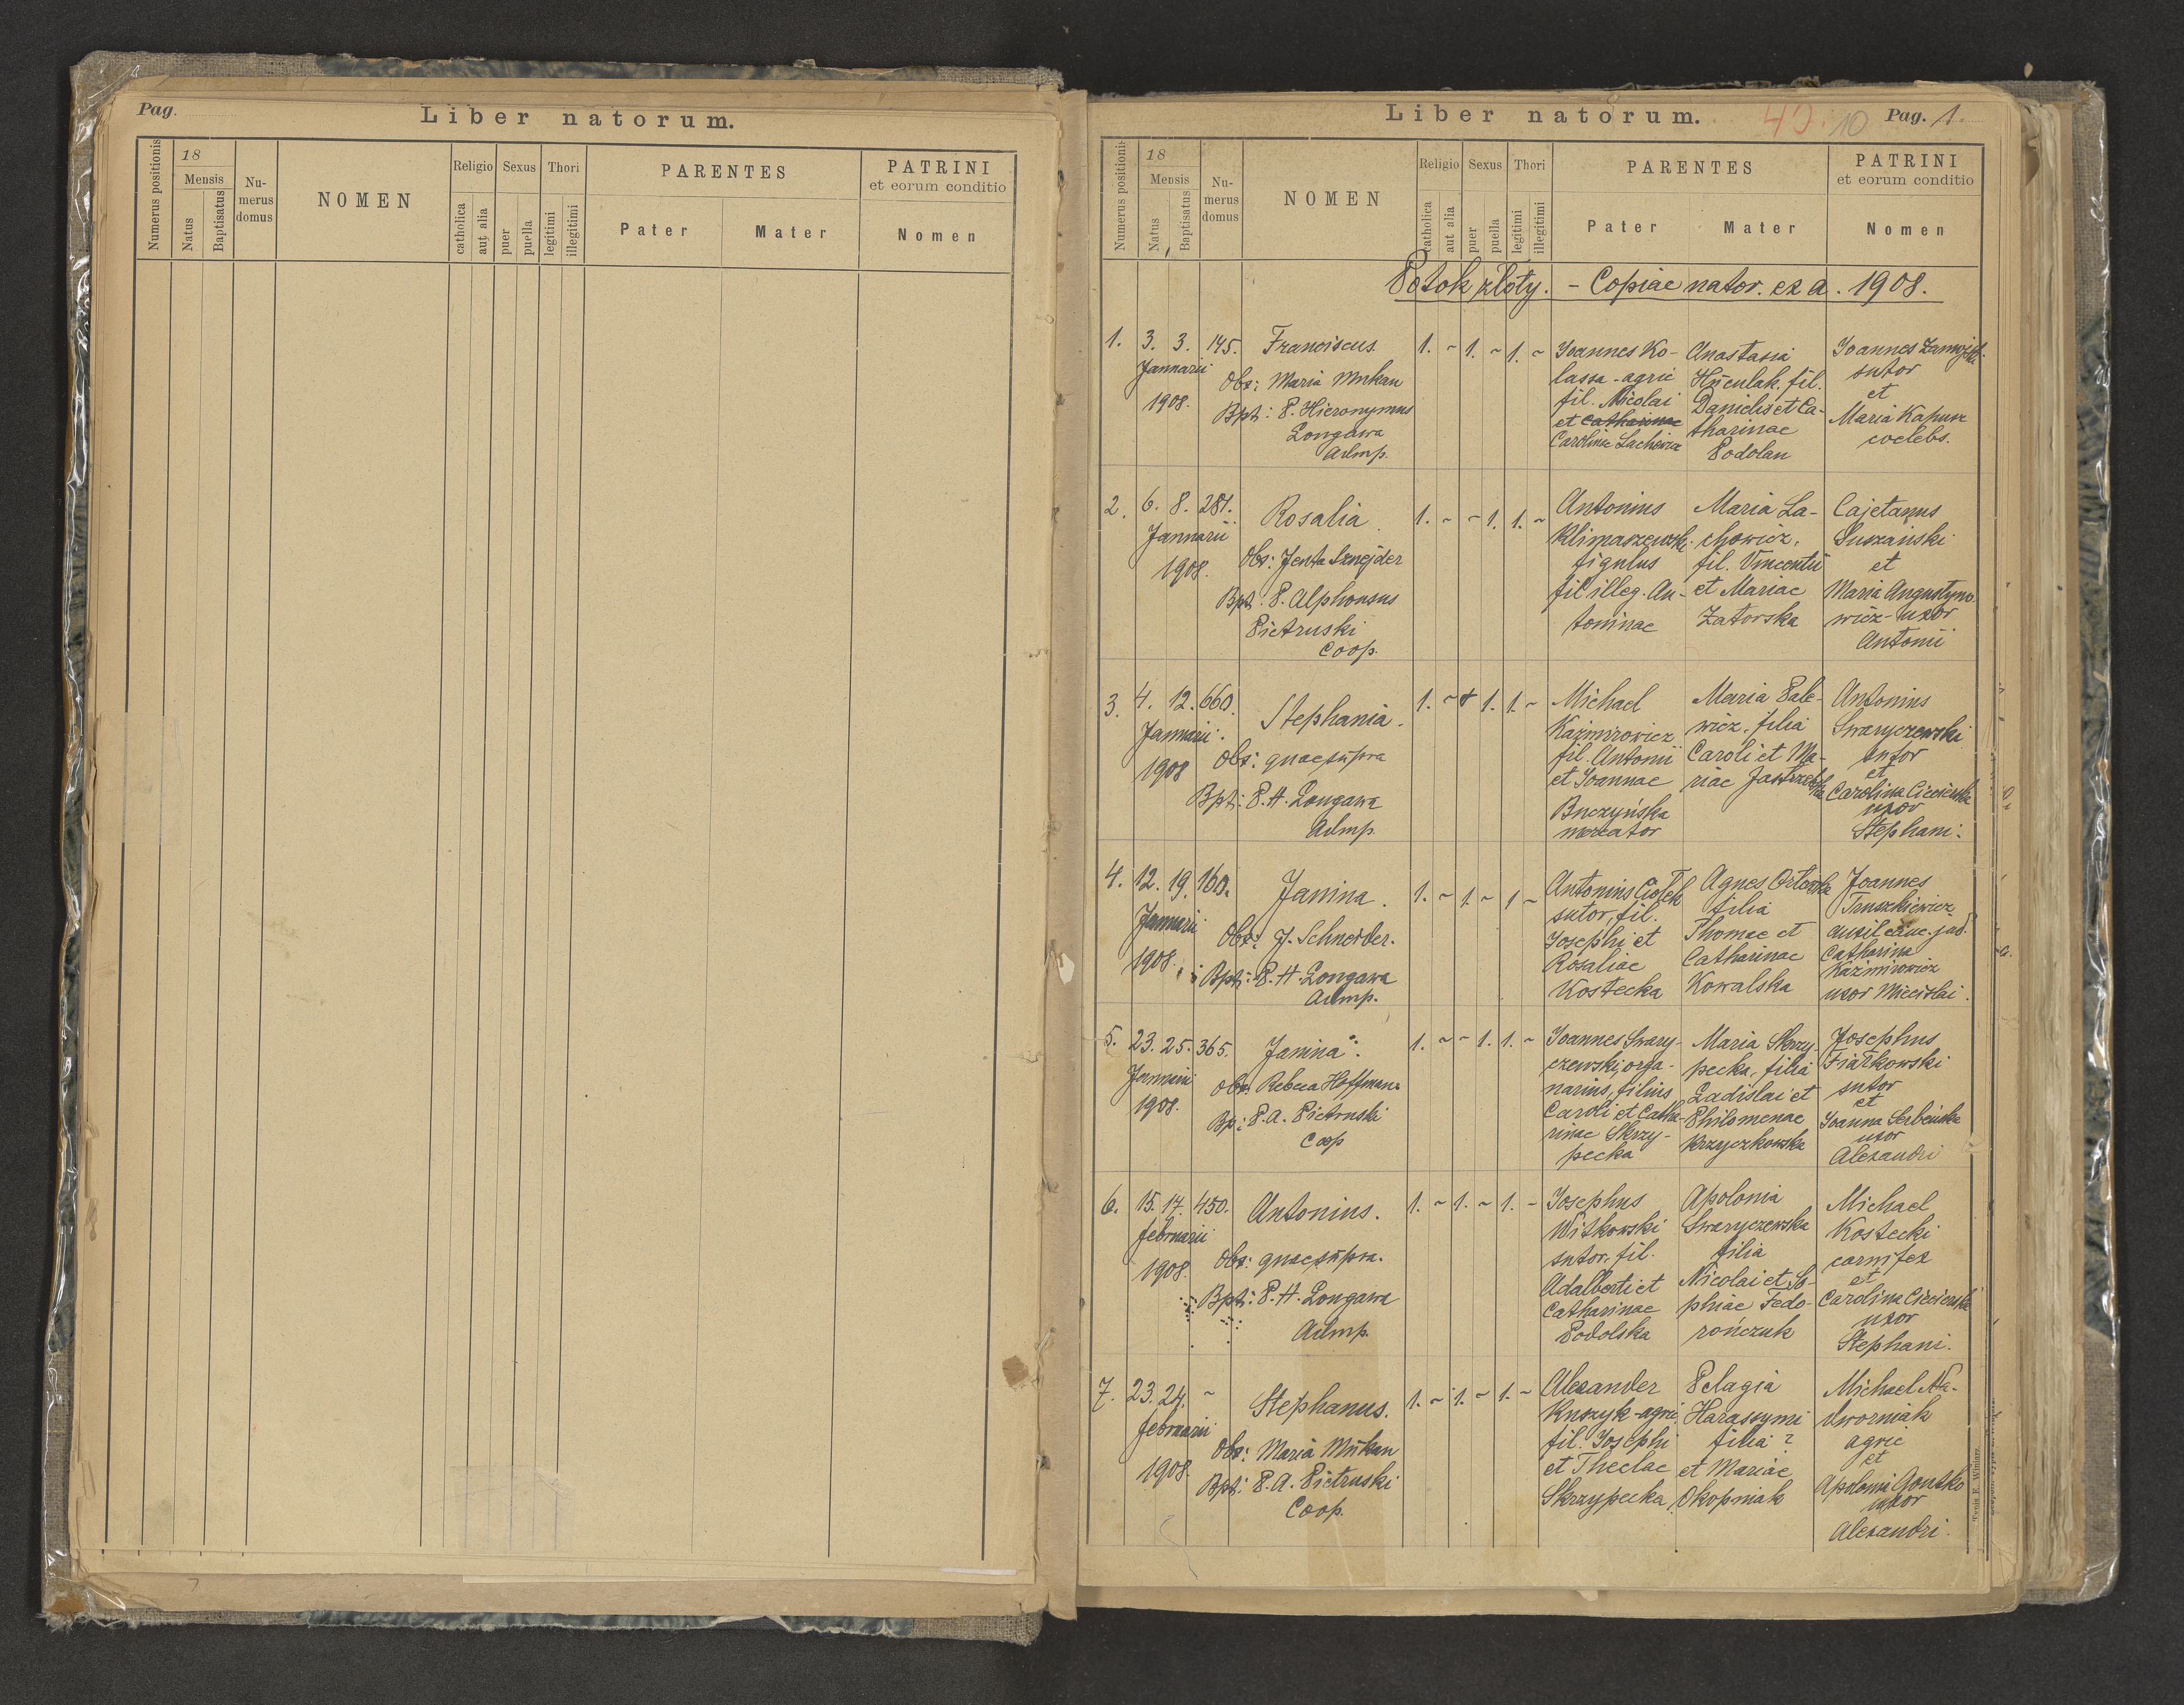 Pag.
Liber natorum.
Numerus positionis
18
Mensis
Natus
Baptisatus
Nu-
merus
domus
NOMEN
Religio
catholica
aut alia
Sexus
puer
puella
Thori
legitimi
illegitimi
PARENTES
Pater
Mater
PATRINI
et eorum conditio
Nomen
Liber natorum.
40. 10
Pag. 1.
Numerus positionis
18
Mensis
Natus
Baptisatus
Nu-
merus
domus
NOMEN
Religio
catholica
aut alia
Sexus
puer
puella
Thori
legitimi
illegitimi
PARENTES
Pater
Mater
PATRINI
et eorum conditio
Nomen
Potok złoty. - Copiae nator. ex a. 1908.
1. 3. 3. 145.
Januarii
1908.
Franciscus.
Obs: Maria Mukan
Bpt: P. Hieronymus
Longawa
Admp.
1. ~ 1. ~ 1. ~
Joannes Ko-
lassa - agric
fil. Nicolai
et Catharinae
Carolina Lachowicz
Anastasia
Huculak, fil.
Danielis et Ca-
tharinae
Podolan
Joannes
sutor
et
Maria Kapusz
coelebs.
2. 6. 8. 281.
Januarii
1908.
Rosalia.
Obs: Jenta Sznejder
Bpt: P. Alphonsus
Pietruski
Coop.
1. ~ ~ 1. 1. ~
Antonius
Klimaszewski
figulus
fil illeg. An-
toninae
Maria La-
chowicz,
fil. Vincentii
et Mariae
Zatorska
Cajetanus
Suszański
et
Maria Augustyno-
wicz - uxor
Antonii
3. 4. 12. 660.
Januarii.
1908
Stephania.
Obs: quae supra
Bpt: P. H. Longawa
Admp.
1. ~ 1. 1. ~
Michael
Kazmirowicz
fil. Antonii
et Joannae
Buczyńska
mercator
Maria Pale-
wicz, filia
Caroli et Ma-
riae Jastrzębska
Antonius
Swaryczewski
sutor
et
Carolina Ciecierska
uxor
Stephani.
4. 12. 19. 160.
Januarii
1908.
Janina.
Obs: J. Schneider.
Bpt: P. H. Longawa
Admp.
1. ~ 1. ~ 1 ~
Antonius Ciołek
sutor, fil.
Josephi et
Rosaliae
Kostecka
Agnes
filia
Thomae et
Catharinae
Kowalska
Joannes
Truszkiewicz
auxil canc. jud.
Catharina
Kazmirowicz
uxor Miecislai.
5. 23. 25. 365.
Januarii
1908.
Janina.
Obs: Rebeca Hoffmann
Bp: P. A. Pietruski
Coop
1. ~ ~ 1. 1. ~
Joannes Swary-
czewski, orga-
narius, filius
Caroli et Catha-
rinae Skrzy-
pecka
Maria Skrzy-
pecka, filia
Ladislai et
Philomenae
Krzyczkowska
Josephus
Fiałkowski
sutor
et
Joanna Serbeńska
uxor
Alexandri
6. 15. 17. 450.
februarii
1908.
Antonius.
Obs: quae supra.
Bpt: P. H. Longawa
Admp.
1. ~ 1. ~ 1. ~
Josephus
Witkowski
sutor, fil.
Adalberti et
Catharinae
Podolska
Apolonia
Swaryczewska
filia
Nicolai et So-
phiae Fedo-
rończuk
Michael
Kostecki
carnifex
et
Carolina Ciecierska
uxor
Stephani.
7. 23. 24. ~
februarii
1908.
Stephanus.
Obs: Maria Mukan
Bpt: P. A. Pietruski
Coop.
1. ~ 1. ~ 1. ~
Alexander
Kuszyk - agric
fil. Josephi
et Theclae
Skrzypecka
Pelagia
Harassymi
filia ?
et Mariae
Okopniak
Michael Na-
dworniak
agric
et
Apolonia Gontko
uxor
Alexandri.